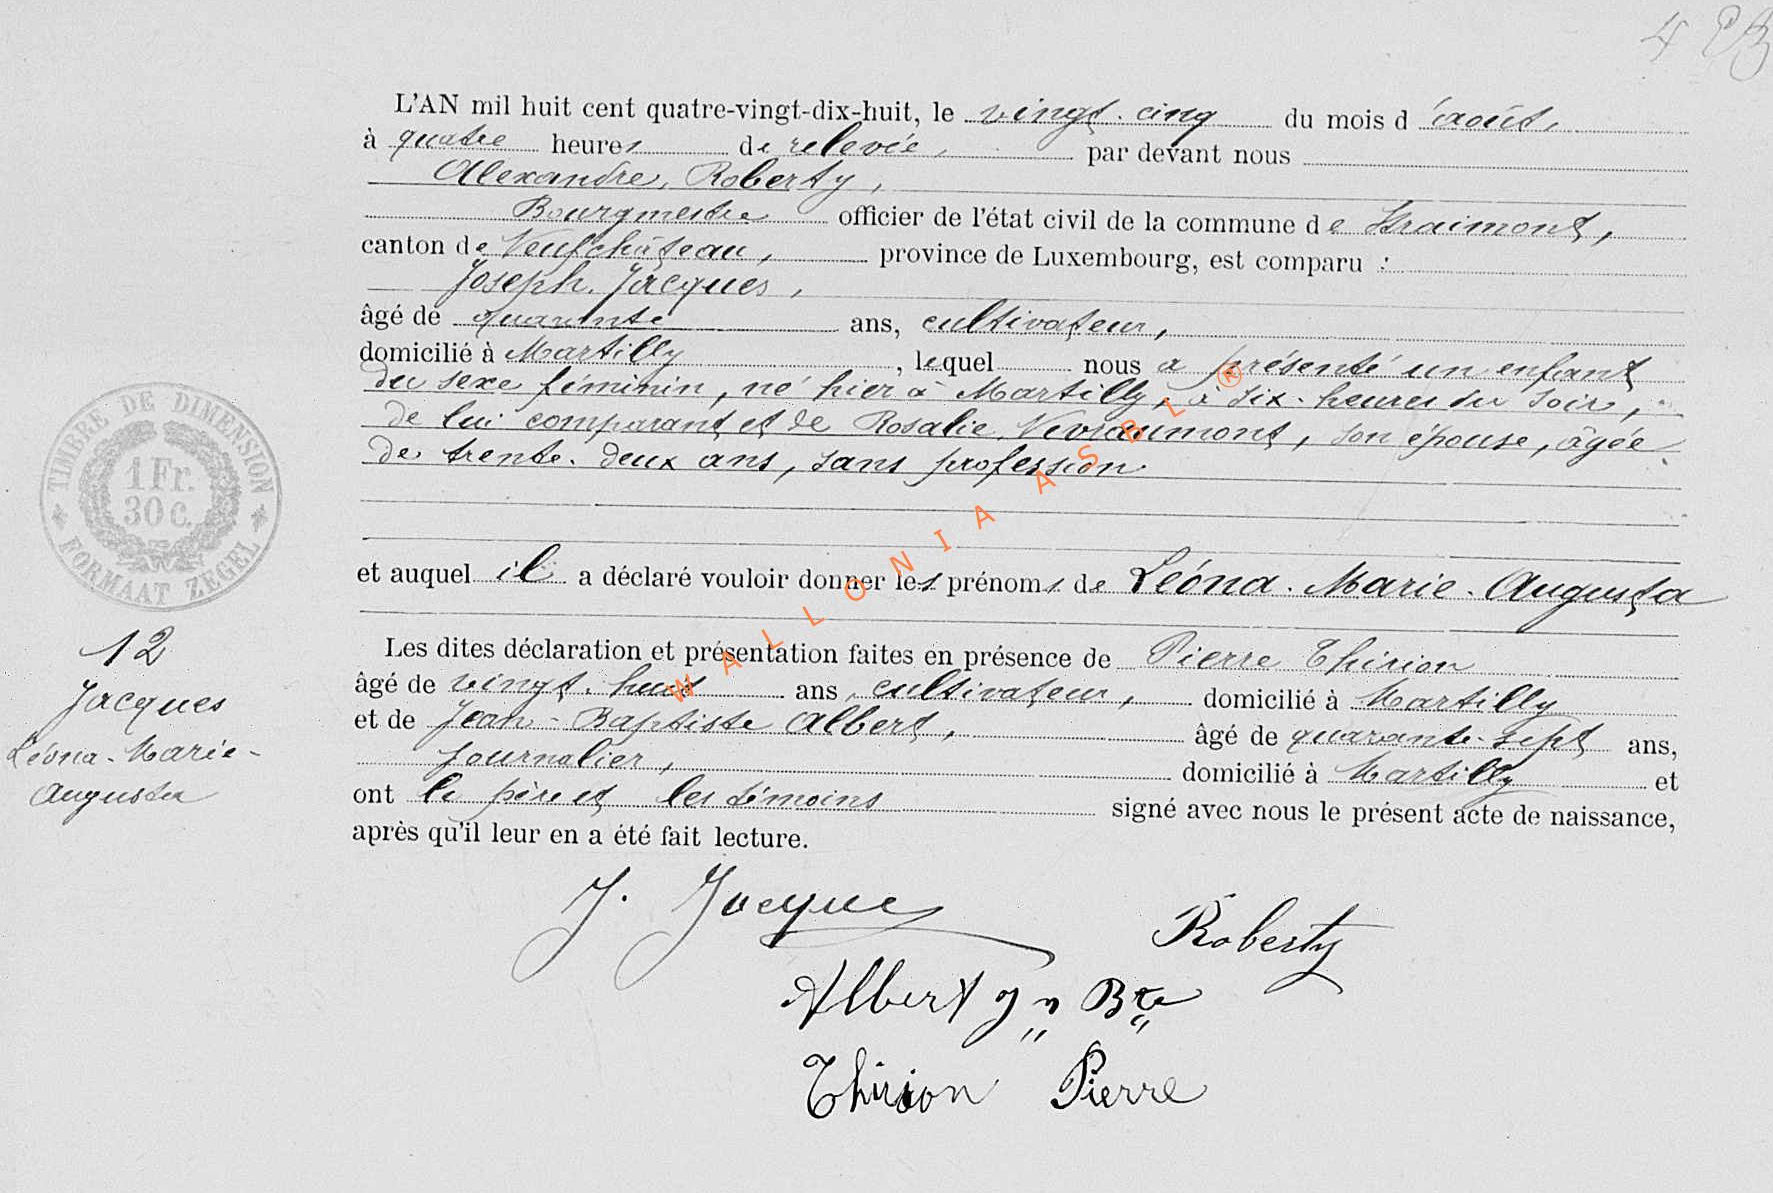 L'AN mil huit cent quatre-vingt-dix-huit, le vingt-cinq du mois d'août,
à quatre heures de relevée, par devant nous
Alexandre Roberty,
Bourgmestre officier de l'état civil de la commune de Straimont,
canton de Neufchâteau, province de Luxembourg, est comparu :
Joseph Jacques,
âgé de quarante ans, cultivateur,
domicilié à Martilly, lequel nous a présenté un enfant
du sexe féminin, né hier à Martilly, à six heures du soir,
de lui comparant et de Rosalie Nevraumont, son épouse, âgée
de trente-deux ans, sans profession
et auquel il a déclaré vouloir donner les prénoms de Léona-Marie-Augusta
Les dites déclaration et présentation faites en présence de Pierre Thirion
âgé de vingt-huit ans, cultivateur, domicilié à Martilly
et de Jean-Baptiste Albert, âgé de quarante-sept ans,
journalier, domicilié à Martilly et
ont le père et les témoins signé avec nous le présent acte de naissance,
après qu'il leur en a été fait lecture.
TIMBRE DE DIMENSION
1 Fr.
30 C.
FORMAAT ZEGEL
12
Jacques
Léona-Marie-
Augusta
J. Jacques
Roberty
Albert Jn Bte
Thirion Pierre
WALLONIA ASBL ®